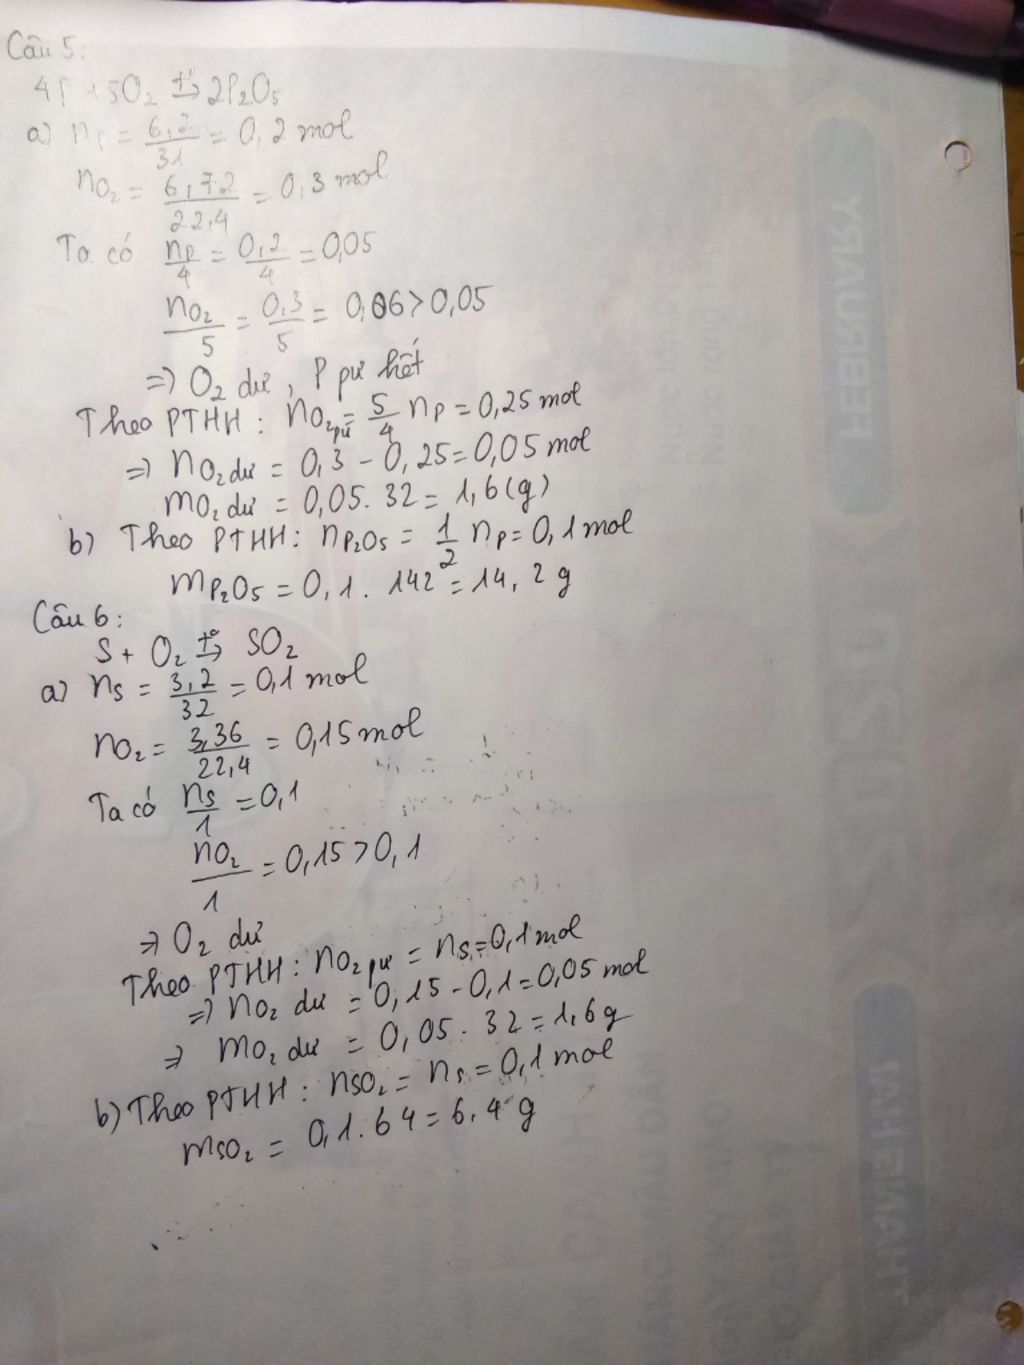 Câu 5:
4P + 5O₂ t°→ 2P₂O₅
a) nP = 6,2/31 = 0,2 mol
nO₂ = 6,72/22,4 = 0,3 mol
Ta có nP/4 = 0,2/4 = 0,05
nO₂/5 = 0,3/5 = 0,06 > 0,05
=> O₂ dư, P pư hết
Theo PTHH: nO₂pư = 5/4 nP = 0,25 mol
=> nO₂ dư = 0,3 - 0,25 = 0,05 mol
mO₂ dư = 0,05. 32 = 1,6 (g)
b) Theo PTHH: nP₂O₅ = 1/2 nP = 0,1 mol
mP₂O₅ = 0,1. 142 = 14,2 g
Câu 6:
S + O₂ t°→ SO₂
a) nS = 3,2/32 = 0,1 mol
nO₂ = 3,36/22,4 = 0,15 mol
Ta có nS/1 = 0,1
nO₂/1 = 0,15 > 0,1
=> O₂ dư
Theo PTHH: nO₂ pư = nS = 0,1 mol
=> nO₂ dư = 0,15 - 0,1 = 0,05 mol
=> mO₂ dư = 0,05. 32 = 1,6 g
b) Theo PTHH: nSO₂ = nS = 0,1 mol
mSO₂ = 0,1. 64 = 6,4 g
FEBRUARY